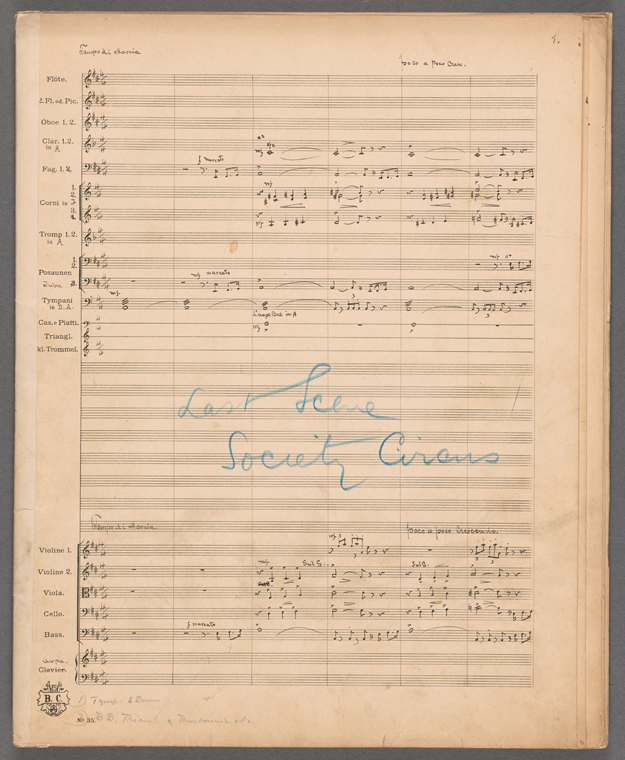 1.
Tempo di Marcia
poco a poco Cresc.
Flöte.
2.Fl.od.Pic.
Oboe 1.2.
Clar. 1.2.
in A
Fag. 1.2.
f marcato
1.
2.
Corni in
3.
4.
Tromp 1.2.
in A
1.
2.
Posaunen
Tuba 3.
mf marcato
Tympani
in D.A.
Cas.e Piatti.
Triangl.
kl. Trommel.
Last Scene
Society Circus
Tempo di Marcia
poco a poco Crescendo.
Violine 1.
Violine 2.
Viola.
Cello.
Bass.
f marcato
Clavier.
B.C.
No. 35.